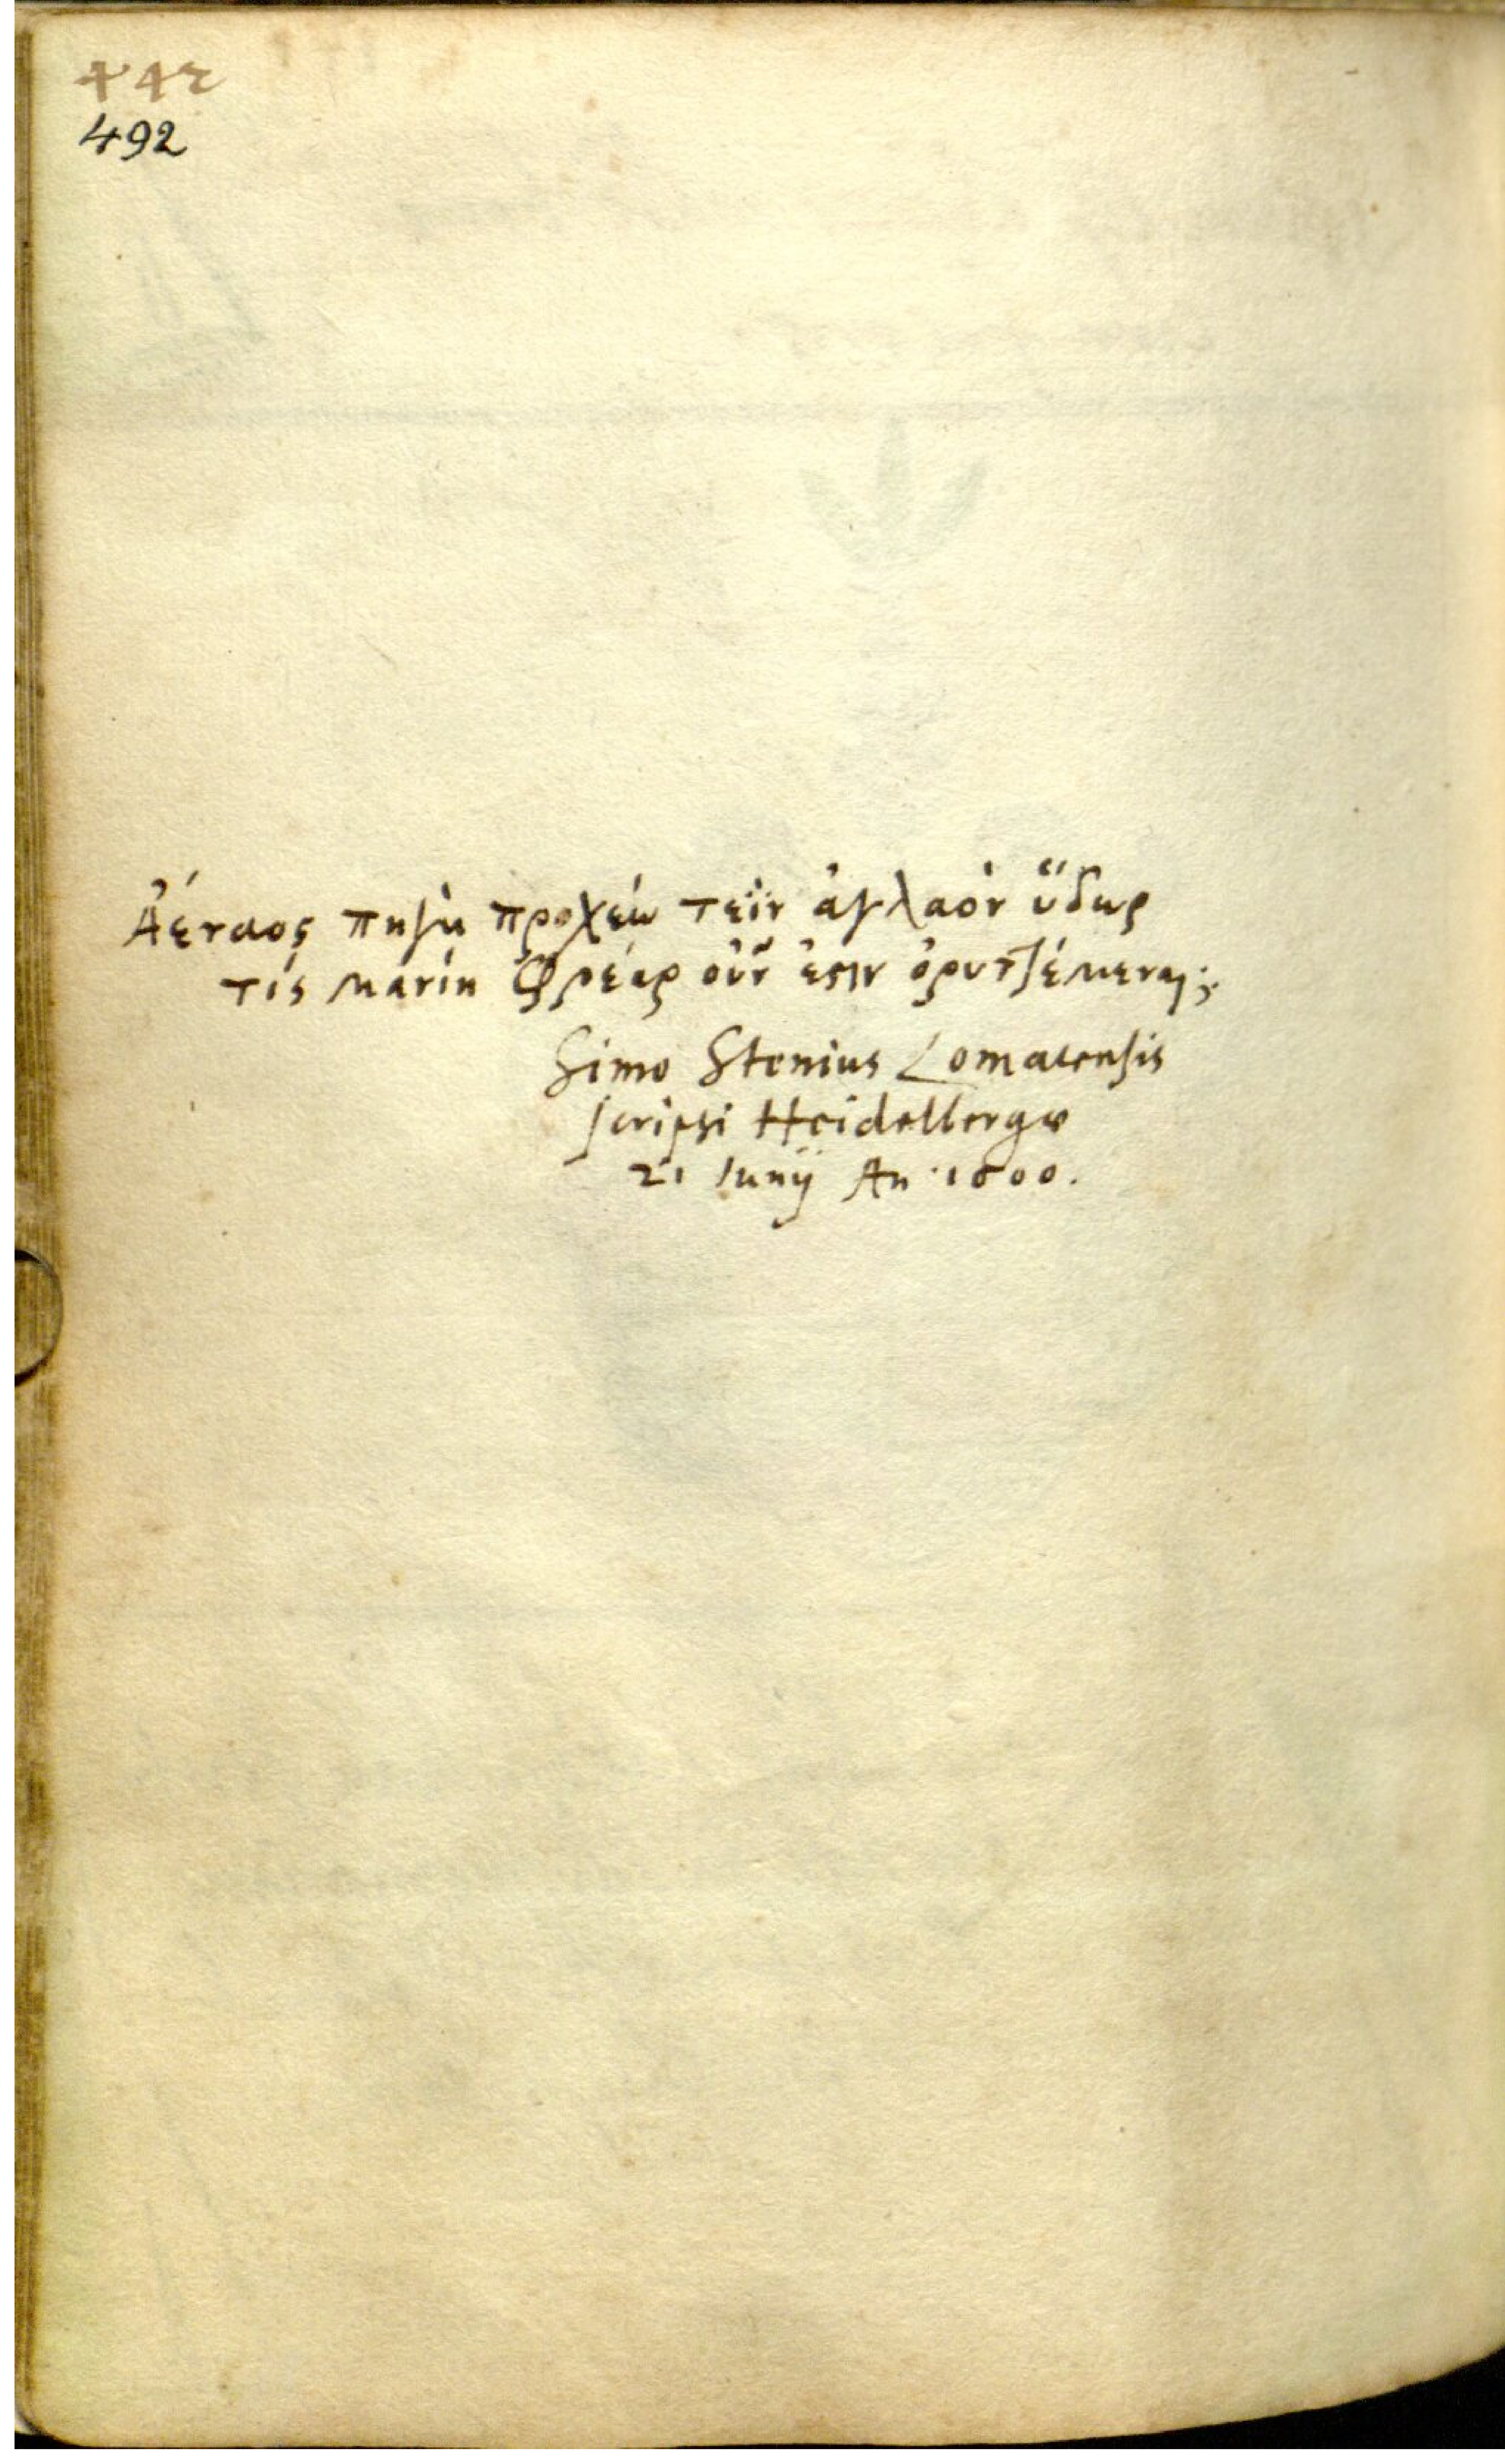 442
492
Ἀέναος πηγὴ προχέει τεῒν ἀγλαὸν ὕδωρ
τίς μανίη φρέαρ οὖν ἐστιν ὀρυττέμεναι;
Simo Stenius Lomacensis
scripsi Heidelbergæ
21 Iunij An. 1600.